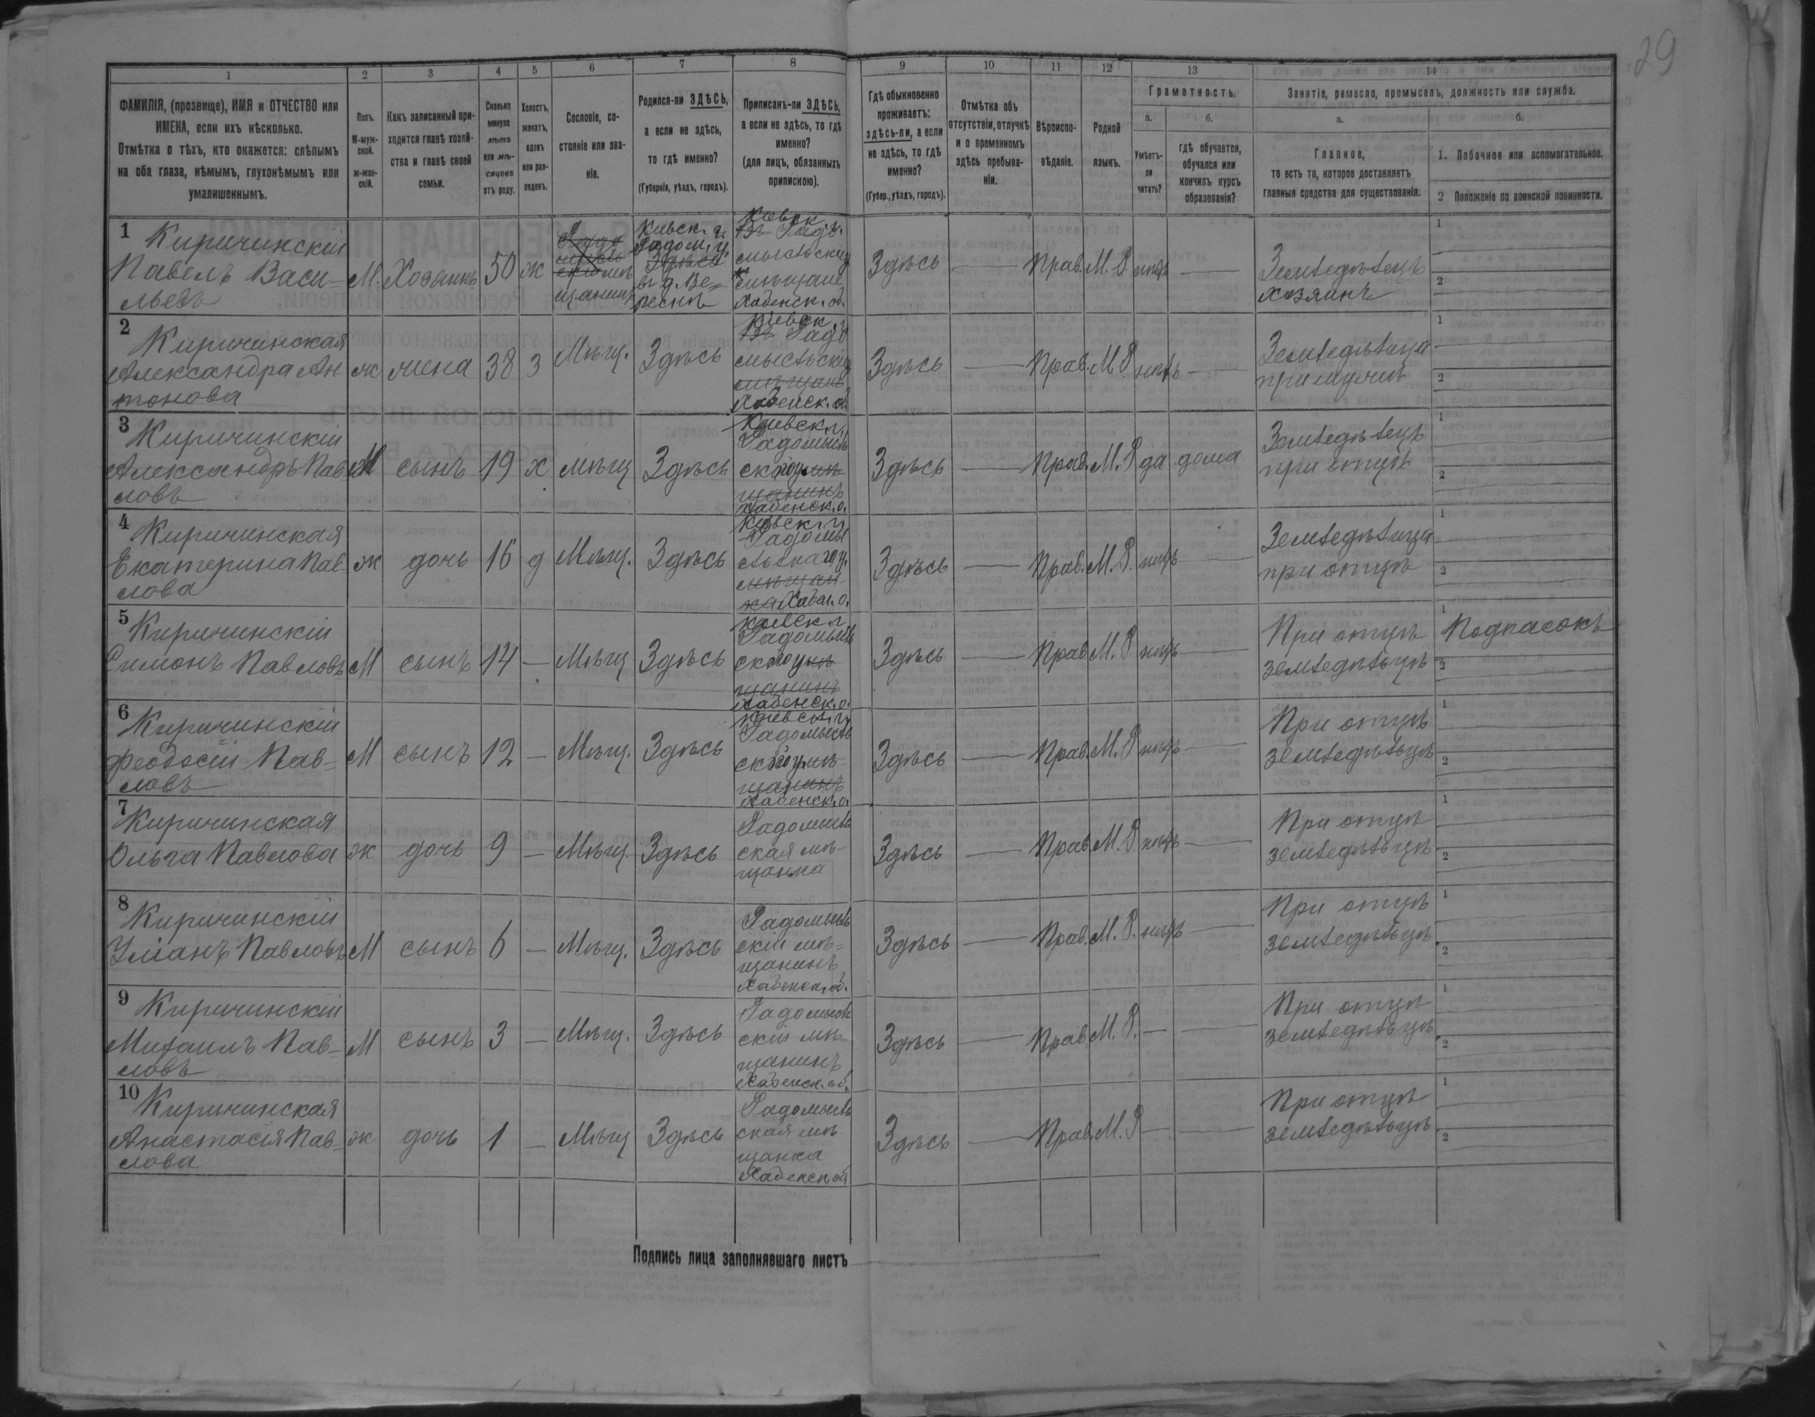 29
1 2 3 4 5 6 7 8 9 10 11 12 13 14
ФАМИЛІЯ, (прозвище), ИМЯ и ОТЧЕСТВО или
ИМЕНА, если ихъ нѣсколько.
Отмѣтка о тѣхъ, кто окажется: слѣпымъ
на оба глаза, нѣмымъ, глухонѣмымъ или
умалишеннымъ.
Полъ.
М-муж-
ской.
ж-жен-
скій.
Какъ записанный при-
ходится главѣ хозяй-
ства и главѣ своей
семьи.
Сколько
минуло
лѣтъ
или мѣ-
сяцевъ
отъ роду.
Холостъ,
женатъ,
вдовъ
или раз-
веденъ.
Сословіе, со-
стояніе или зва-
ніе.
Родился-ли ЗДѢСЬ,
а если не здѣсь,
то гдѣ именно?
(Губернія, уѣздъ, городъ).
Приписанъ-ли ЗДѢСЬ,
а если не здѣсь, то гдѣ
именно?
(для лицъ, обязанныхъ
припискою).
Гдѣ обыкновенно
проживаетъ:
здѣсь-ли, а если
не здѣсь, то гдѣ
именно?
(Губер., уѣздъ, городъ).
Отмѣтка объ
отсутствіи, отлучкѣ
и о временномъ
здѣсь пребыва-
ніи.
Вѣроиспо-
вѣданіе.
Родной
языкъ.
Грамотность.
а.
Умѣетъ-
ли
читать?
б.
гдѣ обучается,
обучался или
кончилъ курсъ
образованія?
Занятіе, ремесло, промыселъ, должность или служба.
а.
Главное,
то есть то, которое доставляетъ
главныя средства для существованія.
б.
1. Побочное или вспомогательное.
2 Положеніе по воинской повинности.
1 Киричинскій
Павелъ Васи-
льевъ
М. Хозяинъ 50 ж
щанинъ
Кіевск. г.
Радом. у.
Здѣсь
въ д. Ве-
ресня
Кіевск
Хабенск. об.
Здѣсь — Прав. М. Р нѣтъ —
Земледѣлецъ
хозяинъ
1
2
2 Киричинская
Александра Ан
тонова
ж жена 38 з Мѣщ. Здѣсь
Кіевск.
Въ Радо
мысльскій
Хабенск. об
Здѣсь — Прав. М. Р нѣтъ —
Земледѣлица
при мужѣ
1
2
3 Киричинскій
Александръ Пав
ловъ
М сынъ 19 х мѣщ Здѣсь
Кіевск г.
Радомысль
щанинъ
Хабенск. о.
Здѣсь — Прав. М. Р да дома
Земледѣлецъ
при отцѣ
1
2
4 Киричинская
Екатерина Пав-
лова
ж дочь 16 д Мѣщ. Здѣсь
Кіевск. г.
Радомы
сльскаго у.
мѣщан
ка Хабен. о.
Здѣсь — Прав. М. Р. нѣтъ —
Земледѣлица
при отцѣ
1
2
5 Киричинскій
Симонъ Павловъ
М сынъ 14 — Мѣщ Здѣсь
Кіевск г.
Радомысль
щанинъ
Хабенск. о.
Здѣсь — Прав М. Р нѣтъ —
При отцѣ
земледѣльцѣ
1 Подпасокъ
2
6 Киричинскій
Феодосій Пав-
ловъ
М сынъ 12 — Мѣщ. Здѣсь
Кіевск. г.
Радомысль
щанинъ
Хабенск. о.
Здѣсь — Прав. М. Р нѣтъ —
При отцѣ
земледѣльцѣ
1
2
7 Киричинская
Ольга Павлова
ж дочь 9 — Мѣщ. Здѣсь
Радомысль
ская мѣ-
щанка
Здѣсь — Прав М. Р нѣтъ —
При отцѣ
земледѣльцѣ
1
2
8 Киричинскій
Уліанъ Павловъ
М сынъ 6 — Мѣщ. Здѣсь
Радомысль
скій мѣ-
щанинъ
Хабенск. об.
Здѣсь — Прав. М. Р. нѣтъ —
При отцѣ
земледѣльцѣ
1
2
9 Киричинскій
Михаилъ Пав-
ловъ
М сынъ 3 — Мѣщ. Здѣсь
Радомысль
скій мѣ-
щанинъ
Хабенск. об.
Здѣсь — Прав М. Р. — —
При отцѣ
земледѣльцѣ
1
2
10 Киричинская
Анастасія Пав-
лова
ж дочь 1 — Мѣщ Здѣсь
Радомысль
ская мѣ-
щанка
Хабенск об
Здѣсь — Прав. М. Р — —
При отцѣ
земледѣльцѣ
1
2
Подпись лица заполнявшаго листъ